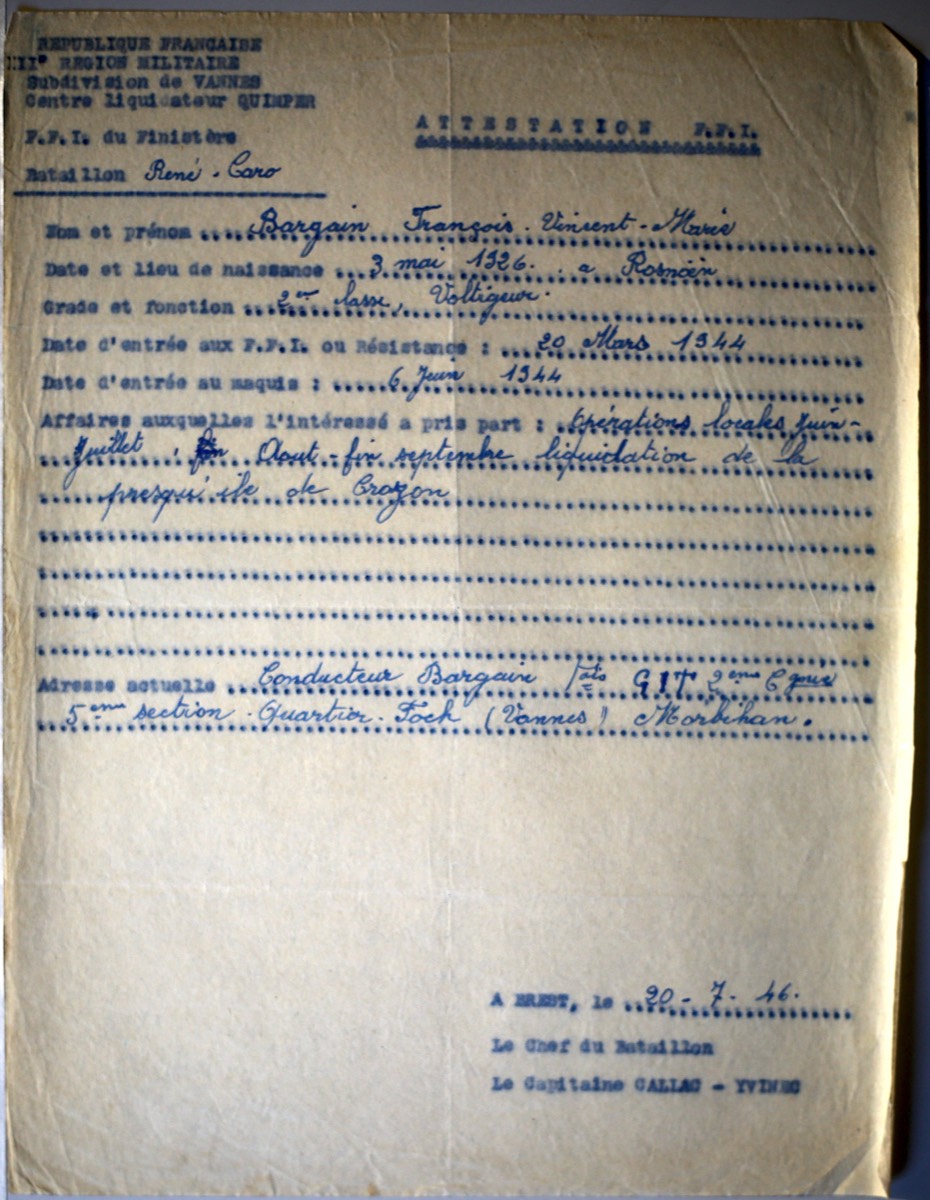 REPUBLIQUE FRANCAISE
II° REGION MILITAIRE
Subdivision de VANNES
Centre liquidateur QUIMPER
F.F.I. du Finistère
Bataillon René-Caro
ATTESTATION F.F.I.
Nom et prénom Bargain François-Vincent-Marie
Date et lieu de naissance 3 mai 1926. a Rosnoën
Grade et fonction 2eme lasse, Voltigeur.
Date d'entrée aux F.F.I. ou Résistance : 20 Mars 1944
Date d'entrée au maquis : 6 Juin 1944
Affaires auxquelles l'intéressé a pris part : opérations locales Juin-
Juillet, Aout-fin septembre liquidation de la
presqu'ile de Crozon
Adresse actuelle Conducteur Bargain GIT 2eme
5eme section. Quartier-Foch (Vannes) Morbihan.
A BREST, le 20-7-46.
Le Chef du Bataillon
Le Capitaine CALLAC - YVINEC